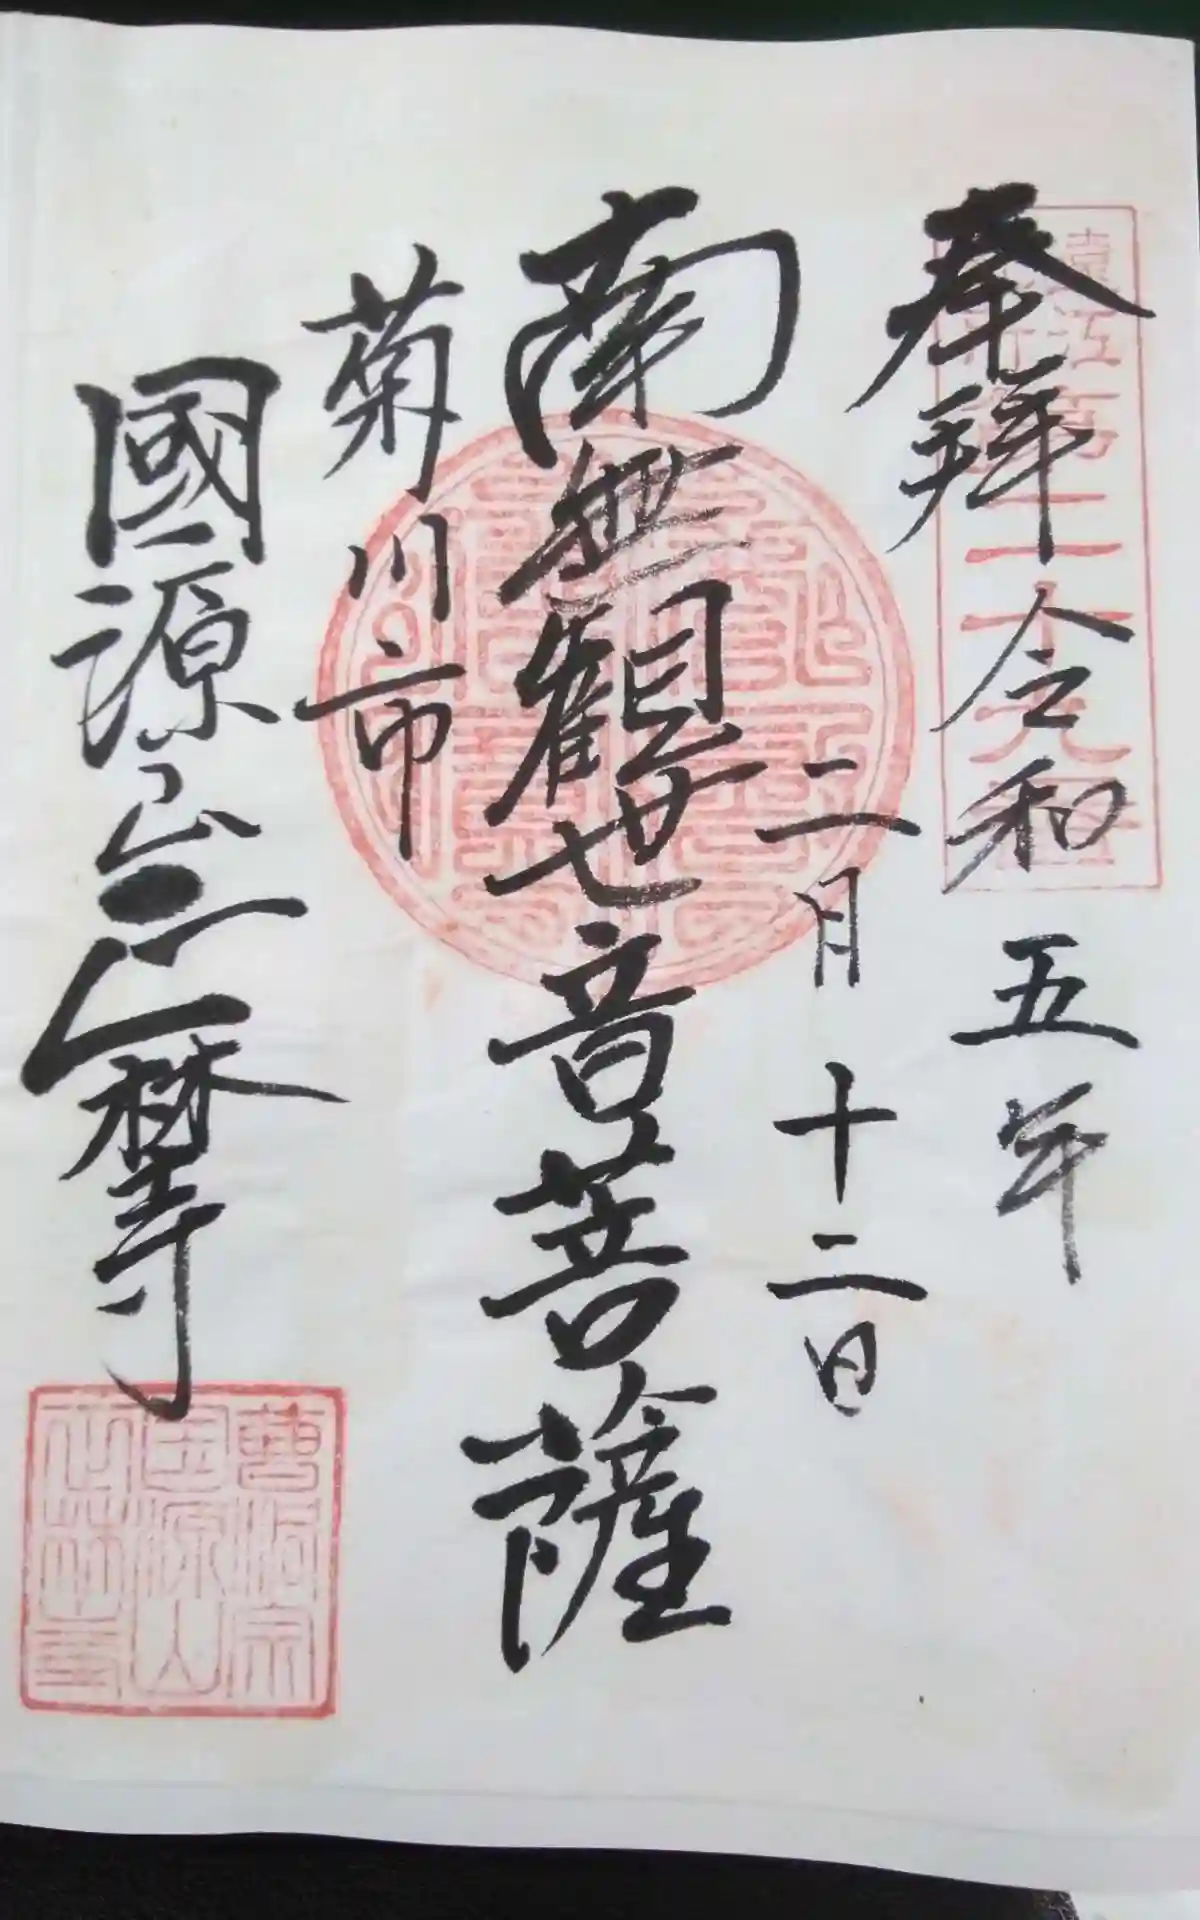 奉拝 令和五年
遠江
第二十九番
二月十二日
南無觀世音菩薩
菊川市
國源山 正林寺
曹洞宗
国源山
正林寺